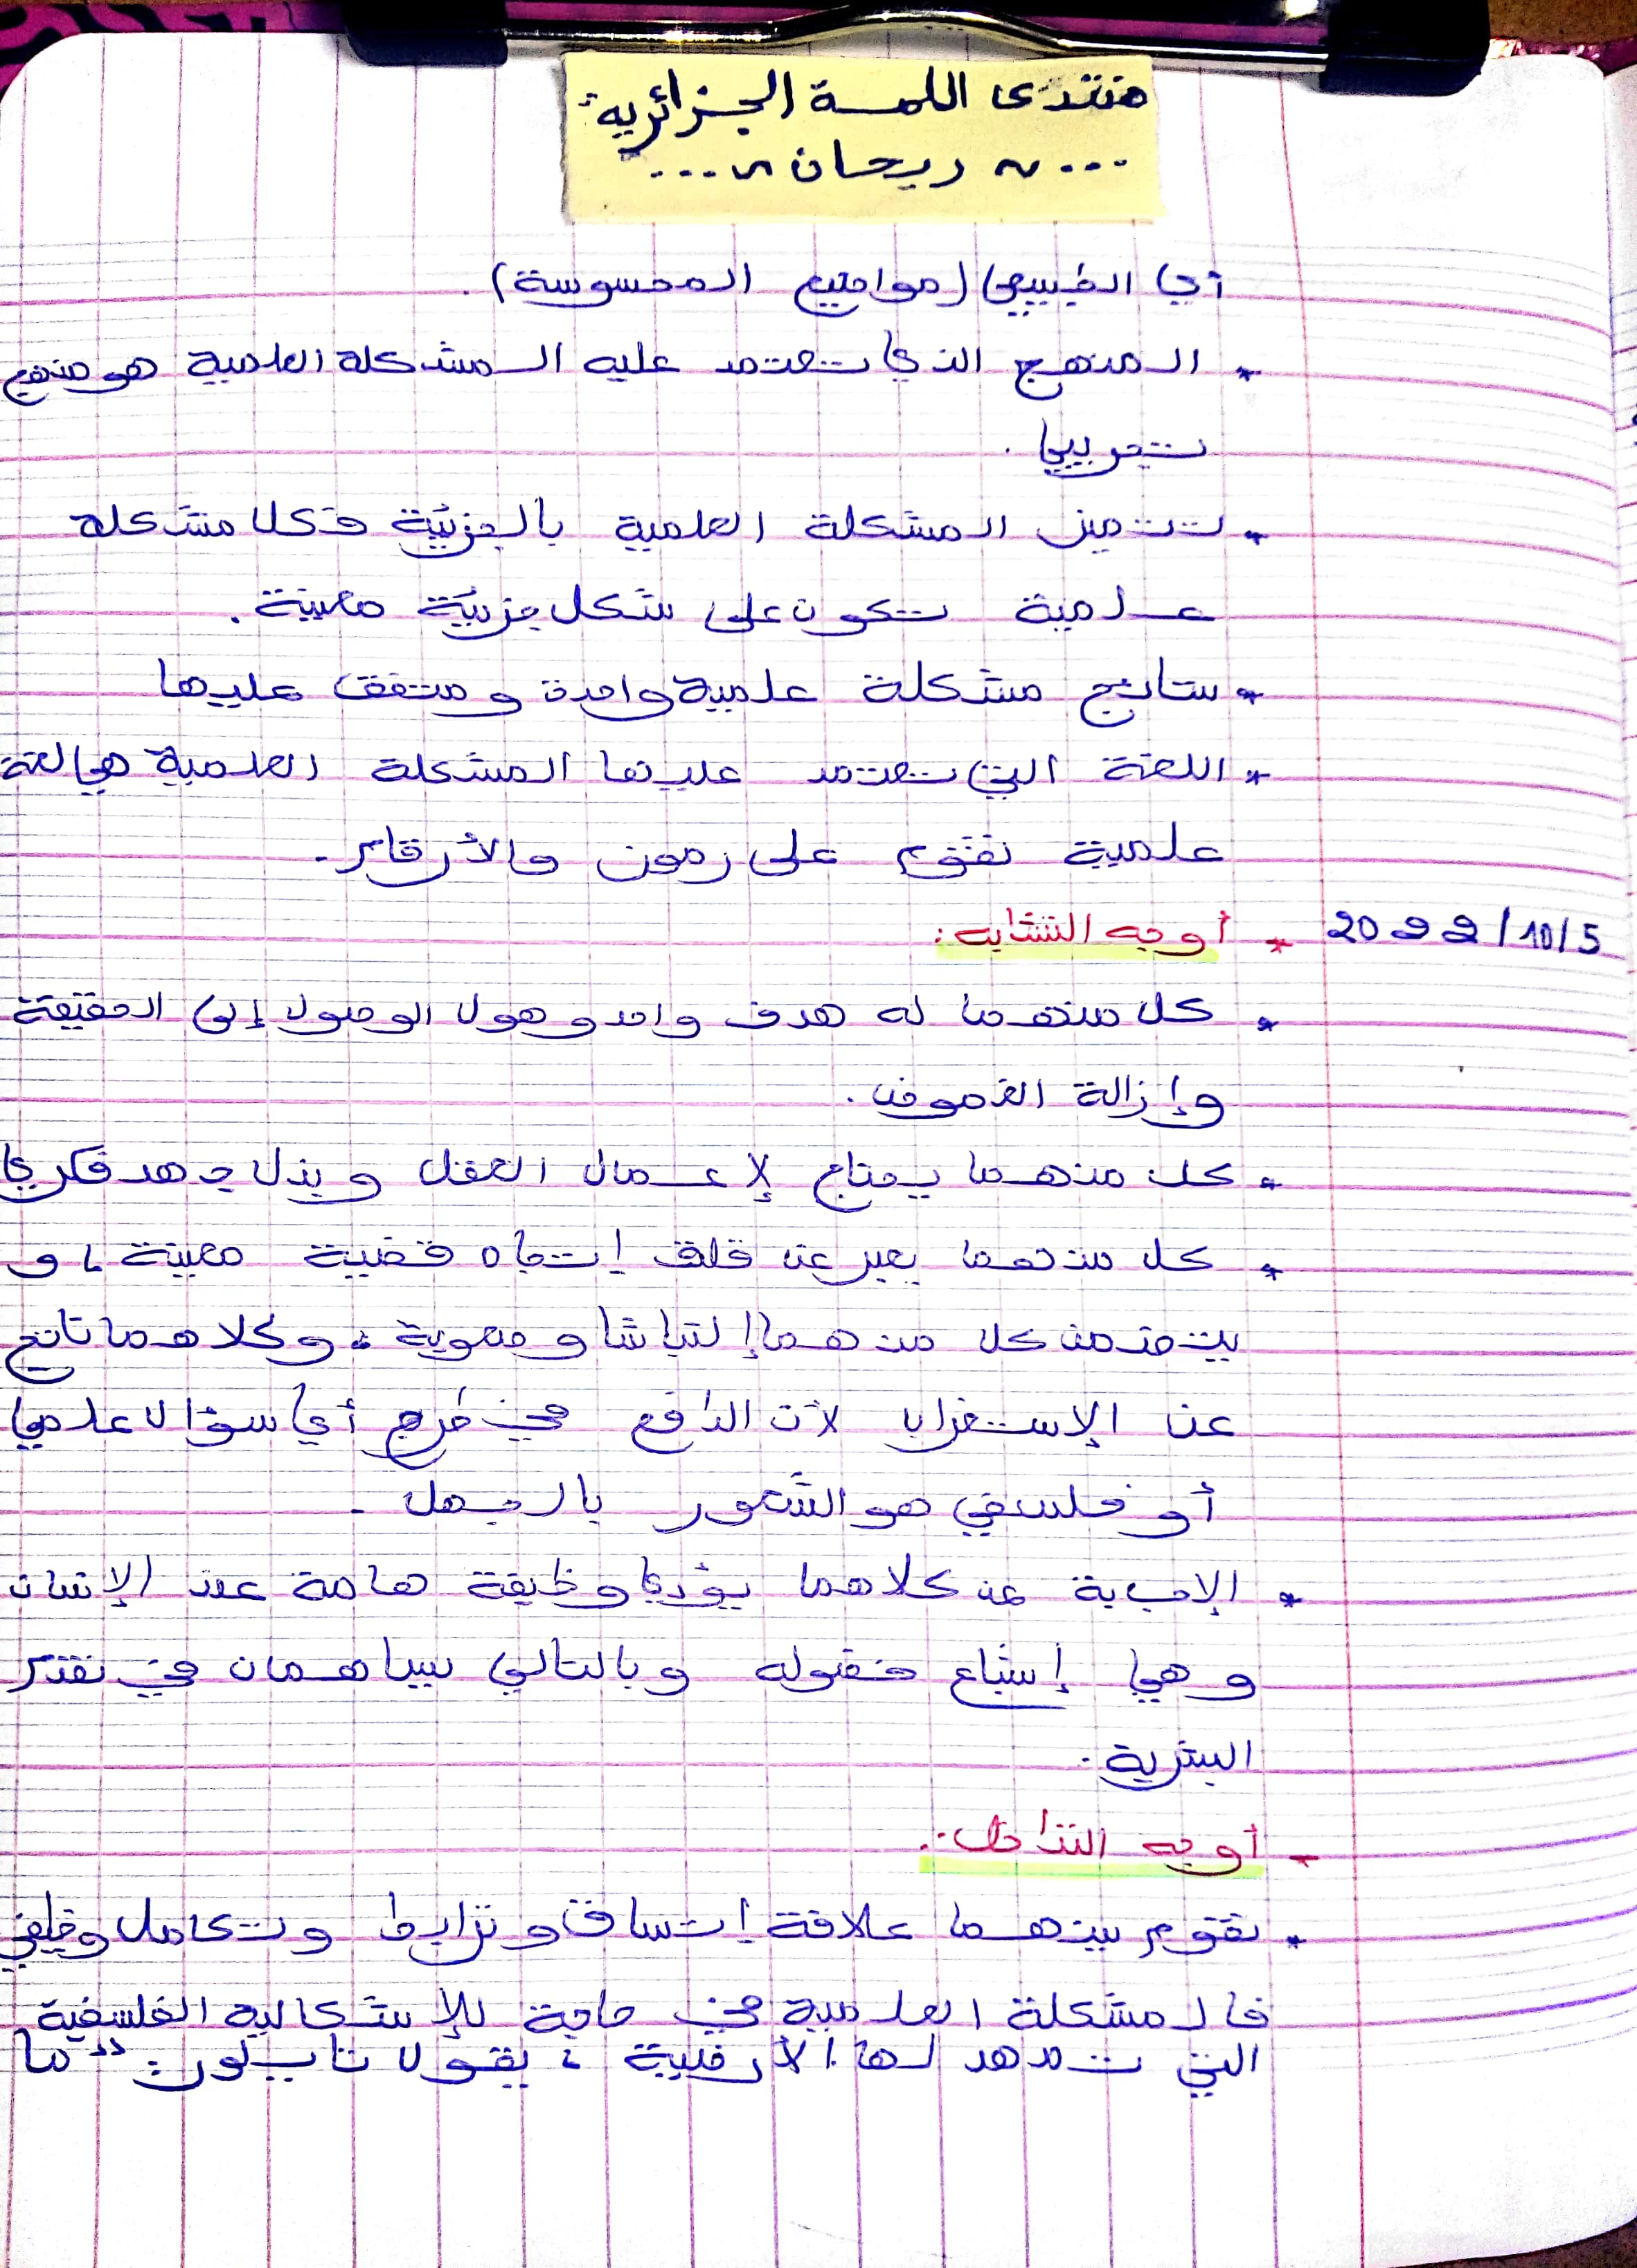 منتدى اللمسة الجزائرية
... ~ ريحان ~ ...
أي الطبيعي (مواضيع المحسوسة).
* المنهج الذي تعتمد عليه المشكلة العلمية هو منهج
تجريبي.
* تتميز المشكلة العلمية بالجزئية فكل مشكلة
علمية تكون على شكل جزئية معينة.
* نتائج مشكلة علمية واحدة ومتفق عليها
* اللغة التي تعتمد عليها المشكلة العلمية هي لغة
علمية تقوم على رموز والأرقام.
2022/10/5 * أوجه التشابه:
* كل منهما له هدف واحد وهو ل الوصول إلى الحقيقة
وإزالة الغموض.
* كل منهما يحتاج لإعمال العقل وبذل جهد فكري
* كل منهما يعبر عن قلق إتجاه قضية معينة، و
يتضمن كل منهما إلتباسا وصعوبة، وكلاهما ناتج
عن الإستغراب لأن الدافع في طرح أي سؤال علمي
أو فلسفي هو الشعور بالجهل.
* الإجابة عن كلاهما يؤدي وظيفة هامة عند الإنسان
وهي إشباع فضوله وبالتالي يساهمان في تقدم
البشرية.
- أوجه التداخل:
* تقوم بينهما علاقة إتساق وترابط وتكامل وظيفي
فالمشكلة العلمية في حاجة للإشكالية الفلسفية
التي تمهد لها الأرضية، يقول تايلور: "ما